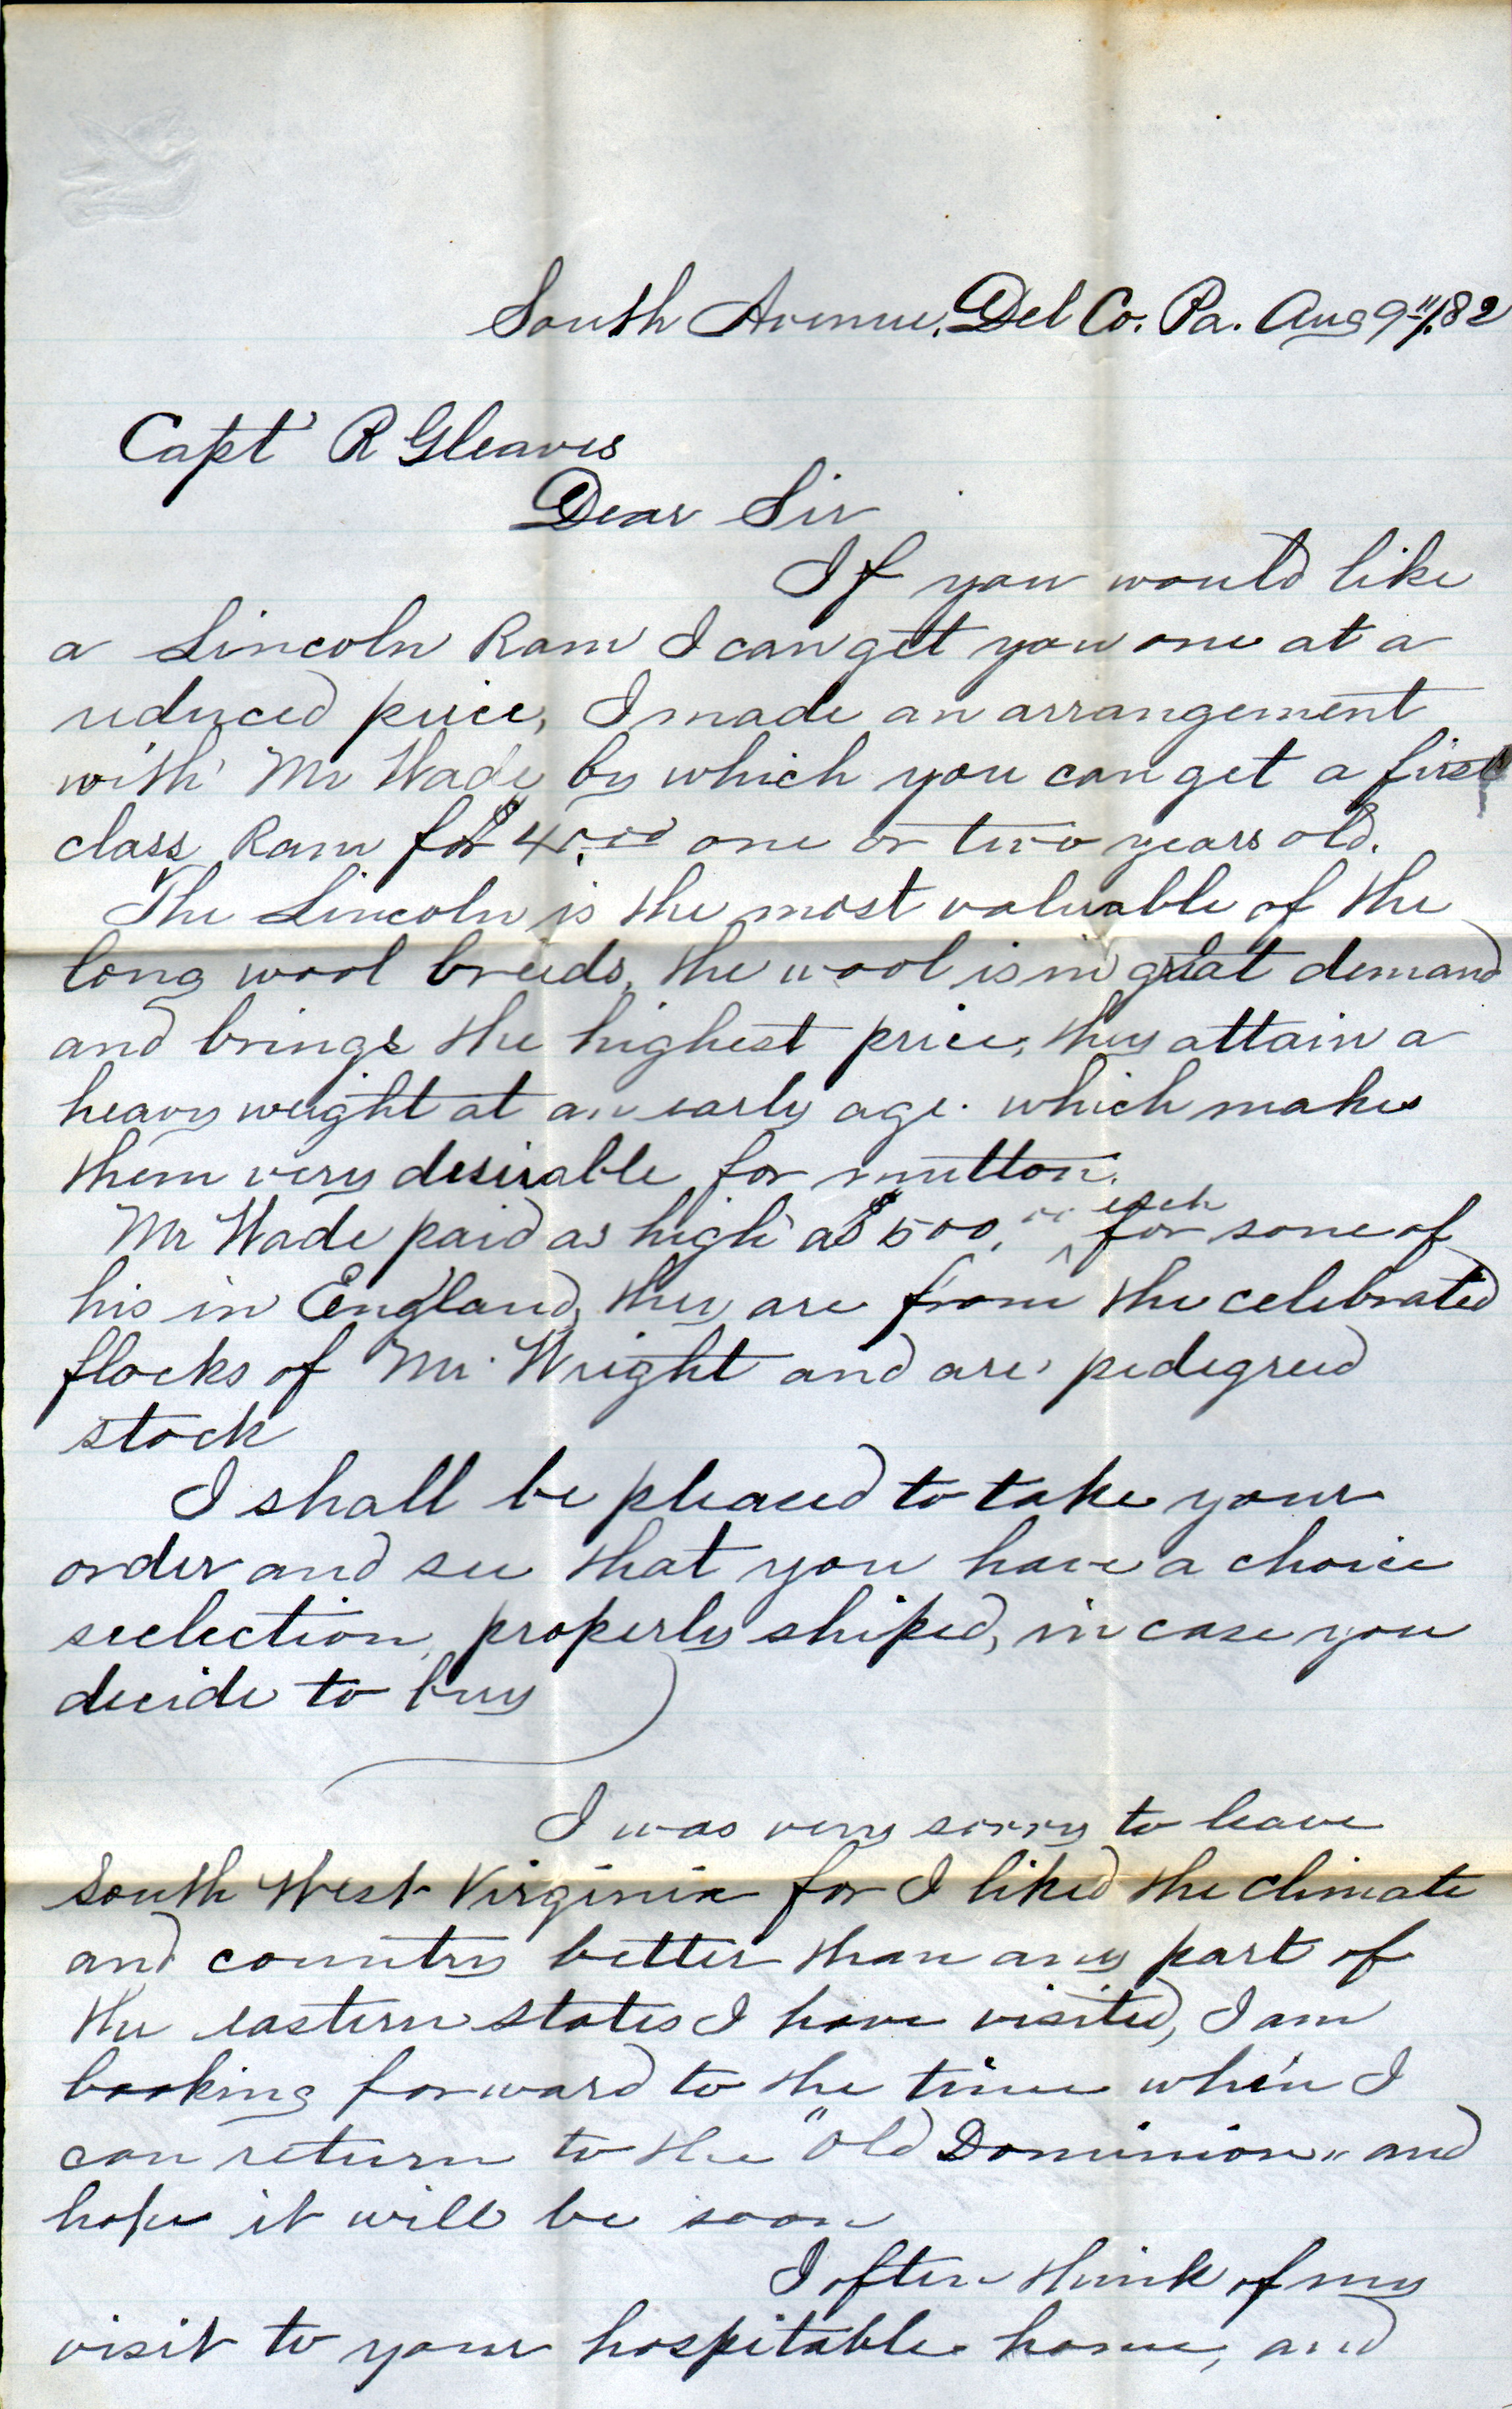 South Avenue, Del Co. Pa. Aug 9th/82
Capt R Gleaves
Dear Sir
If you would like
a Lincoln Ram I can get you one at a
reduced price, I made an arrangement
with Mr Wade by which you can get a first
class Ram for one or two years old.
The Lincoln is the most valuable of the
long wool breeds, the wool is in great demand
and brings the highest price, they attain a
heavy weight at an early age. which makes
them very desirable for mutton.
Mr Wade paid as high as $500.00 each for some of
his in England, they are from the celebrated
flocks of Mr. Wright and are pedigreed
stock
I shall be pleased to take your
order and see that you have a choice
selection, properly shiped, in case you
decide to buy
I was very sorry to leave
South West Virginia for I liked the climate
and country better than any part of
the eastern states I have visited, I am
looking forward to the time when I
can return to the "Old Dominion" and
hope it will be soon
I often think of my
visit to your hospitable home, and